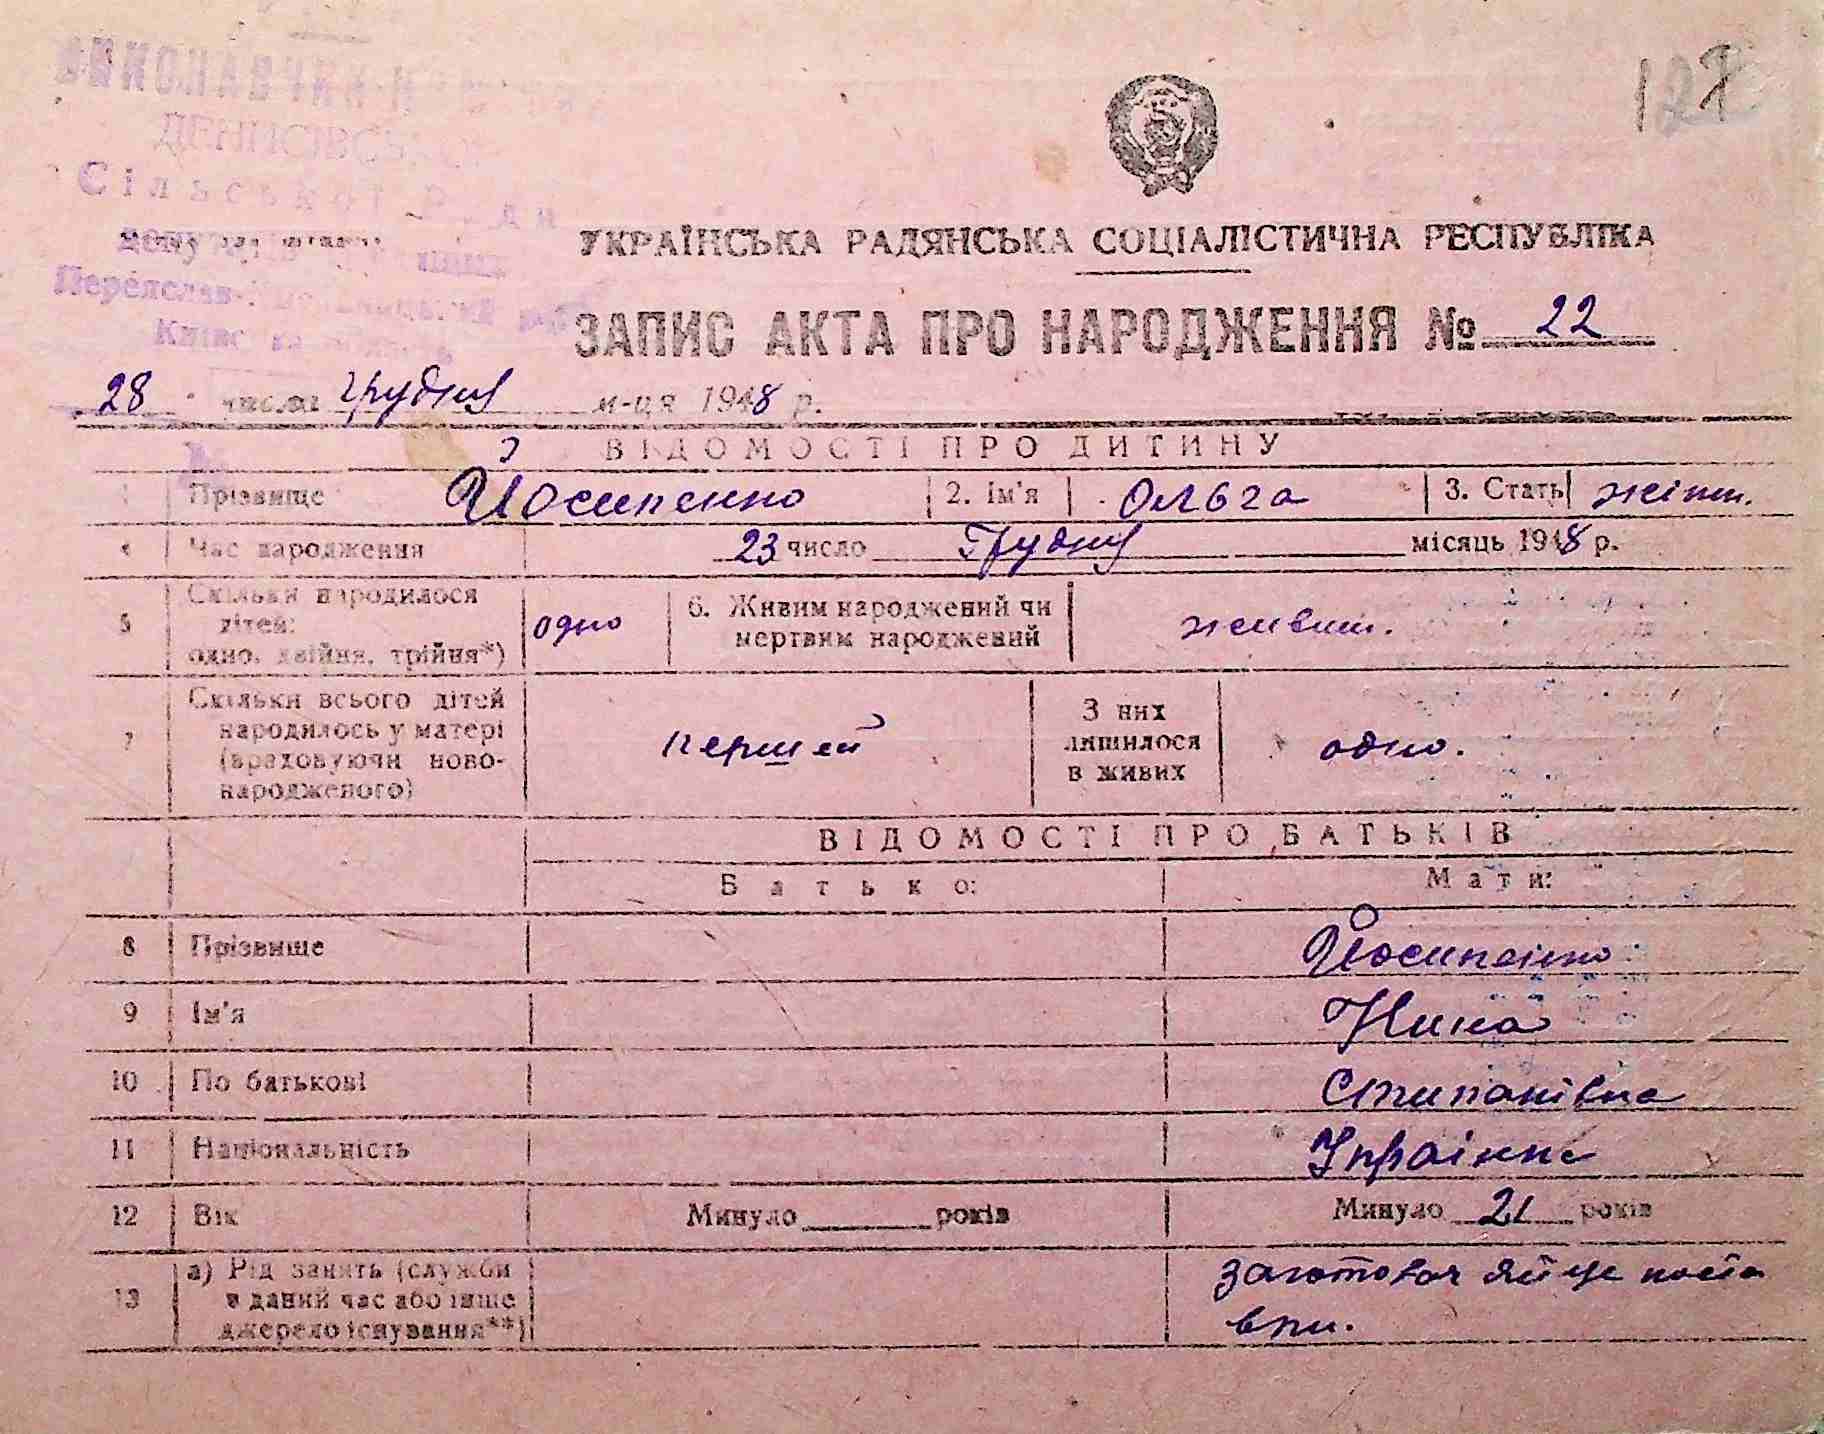 ДЕНИСІВСЬКОЇ
Сільської Ради
Переяслав-
УКРАЇНСЬКА РАДЯНСЬКА СОЦІАЛІСТИЧНА РЕСПУБЛІКА
ЗАПИС АКТА ПРО НАРОДЖЕННЯ № 22
28 числа грудня м-ця 1948 р.
ВІДОМОСТІ ПРО ДИТИНУ
1 Прізвище Йосипенко 2. Ім'я Ольга 3. Стать жіноч.
4 Час народження 23 число Грудня місяць 1948 р.
5 Скільки народилося дітей: одно, двійня, трійня*) одно 6. Живим народжений чи мертвим народжений живим.
7 Скільки всього дітей народилось у матері (враховуючи новонародженого) першей З них лишилося в живих одно.
ВІДОМОСТІ ПРО БАТЬКІВ
Батько: Мати:
8 Прізвище Йосипенко
9 Ім'я Нина
10 По батькові Степанівна
11 Національність Українка
12 Вік Минуло років Минуло 21 років
13 а) Рід занять (служби в даний час або інше джерело існування**)